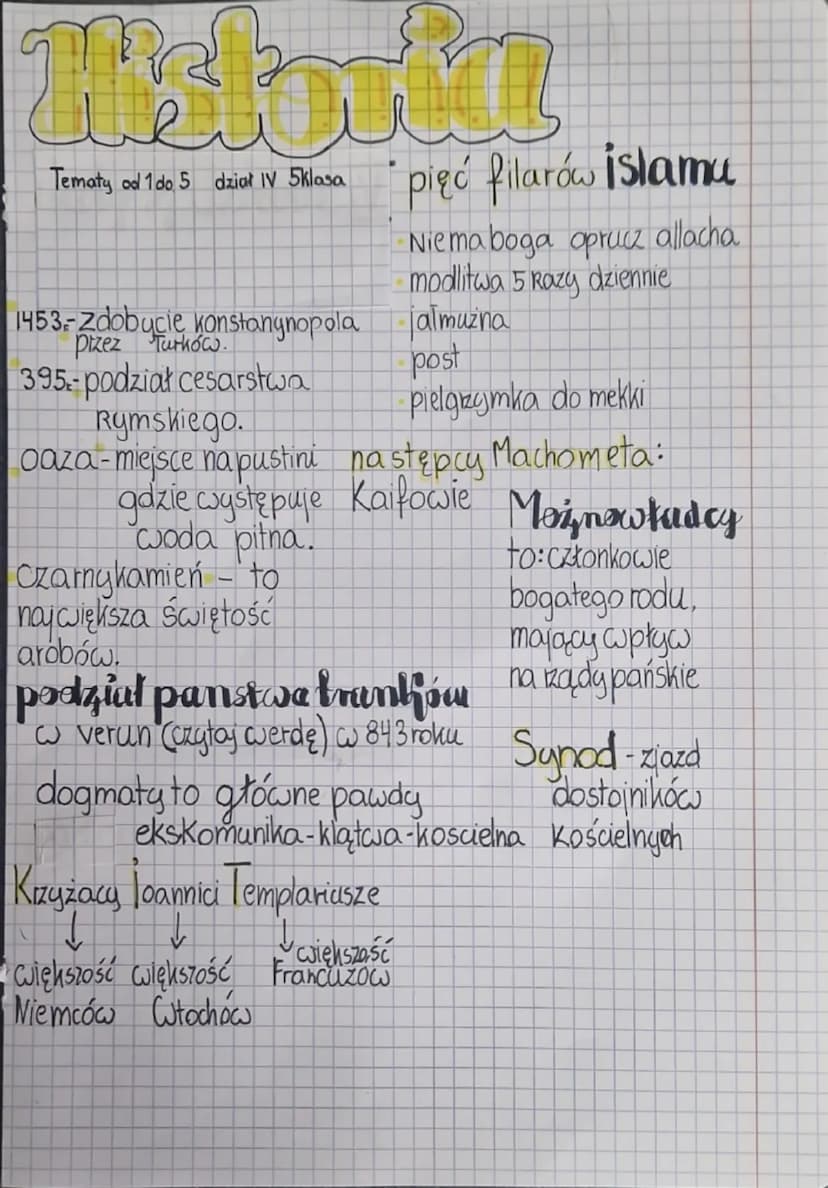 Historia
Tematy od 1 do 5 dział IV 5klasa
pięć filarów islamu
Niema boga oprucz allacha
modlitwa 5 Razy dziennie
jałmużna
post
pielgrzymka do mekki
1453r.-Zdobycie konstanynopola
przez Turków.
395r.-podział cesarstwa
Rymskiego.
oaza-miejsce na pustini
gdzie występuje
woda pitna.
następcy Machometa:
Kaifowie
Możnowładcy
to: członkowie
bogatego rodu,
mający wpływ
na rządy pańskie
Czarny kamień - to
największa świętość
arobów.
podział panstwa frankjów
w verun (czytaj werdę) w 843 roku
Synod - zjazd
dostojników
Kościelnych
dogmaty to główne pawdy
ekskomunika-klątwa-koscielna
Krzyżacy Joannici Templariusze
większość większość większość
Niemców Włochów Francuzów